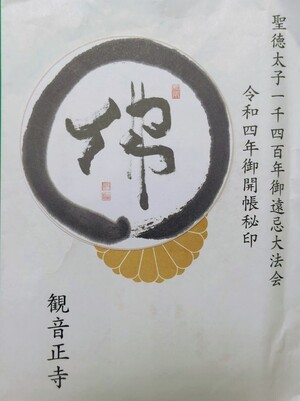 聖徳太子一千四百年御遠忌大法会
令和四年御開帳秘印
佛
観音正寺